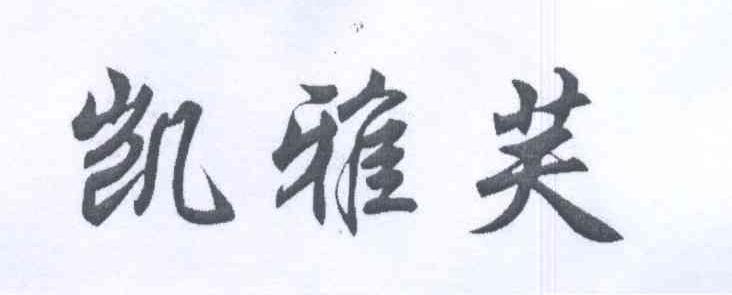 凯雅芙